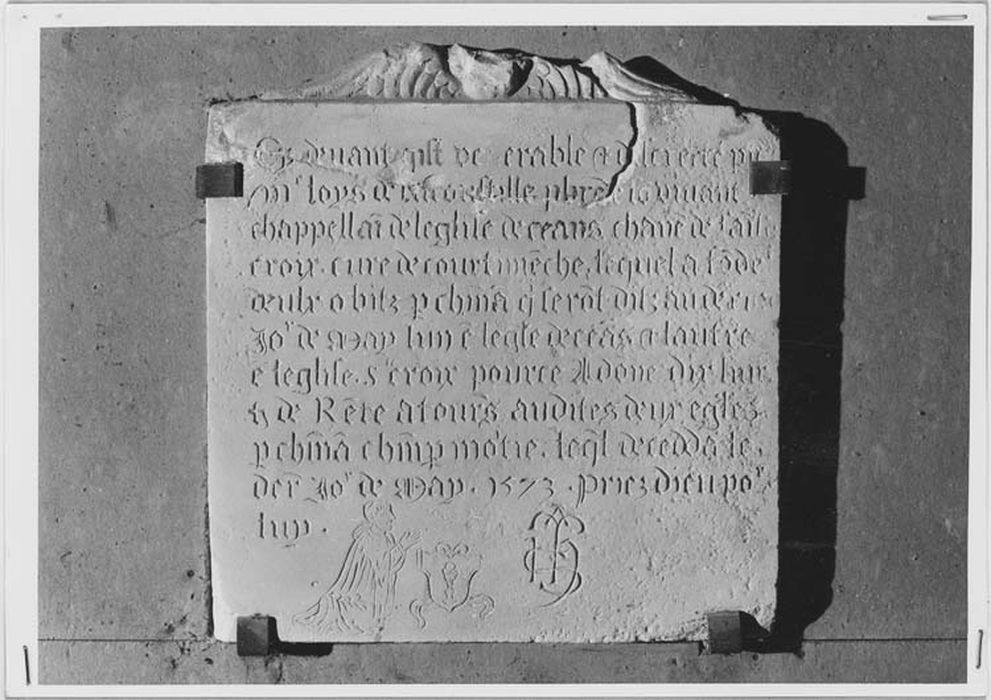 Cy deuant gist ve erable & discrete p
Mr loys de plact de so viuant
chappellaī de leglise de ceans chane de sait
croix. cure de courtimēche. lequel a fōde
deulx obitz p chūā q serōt ditz au
Jor de May lun ē legle de ceās & lautre
ē leglise. s croix pource A done dix huit
ħ de Rēte atours audites deux egles
p chūā legl decedda le
der Jor de May. 1573. priez dieu por
luy.